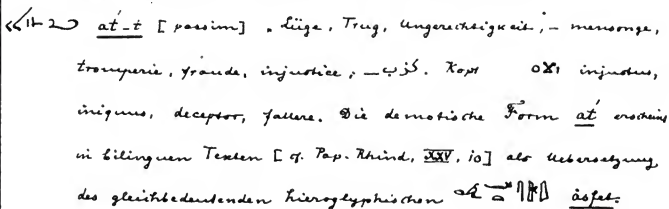 at́-t [passim] . Lüge, Trug, Ungerechtigkeit; – mensonge,
tromperie, fraude, injustice; – كزب. Kopt ⲟϫⲓ injustus,
iniquus, deceptor, fallere. Die demotische Form at́ erscheint
in bilinguen Texten [cf. Pap. Rhind, XXV, 10] als Uebersetzung
des gleichbedeutenden hieroglyphischen ȧsfet.